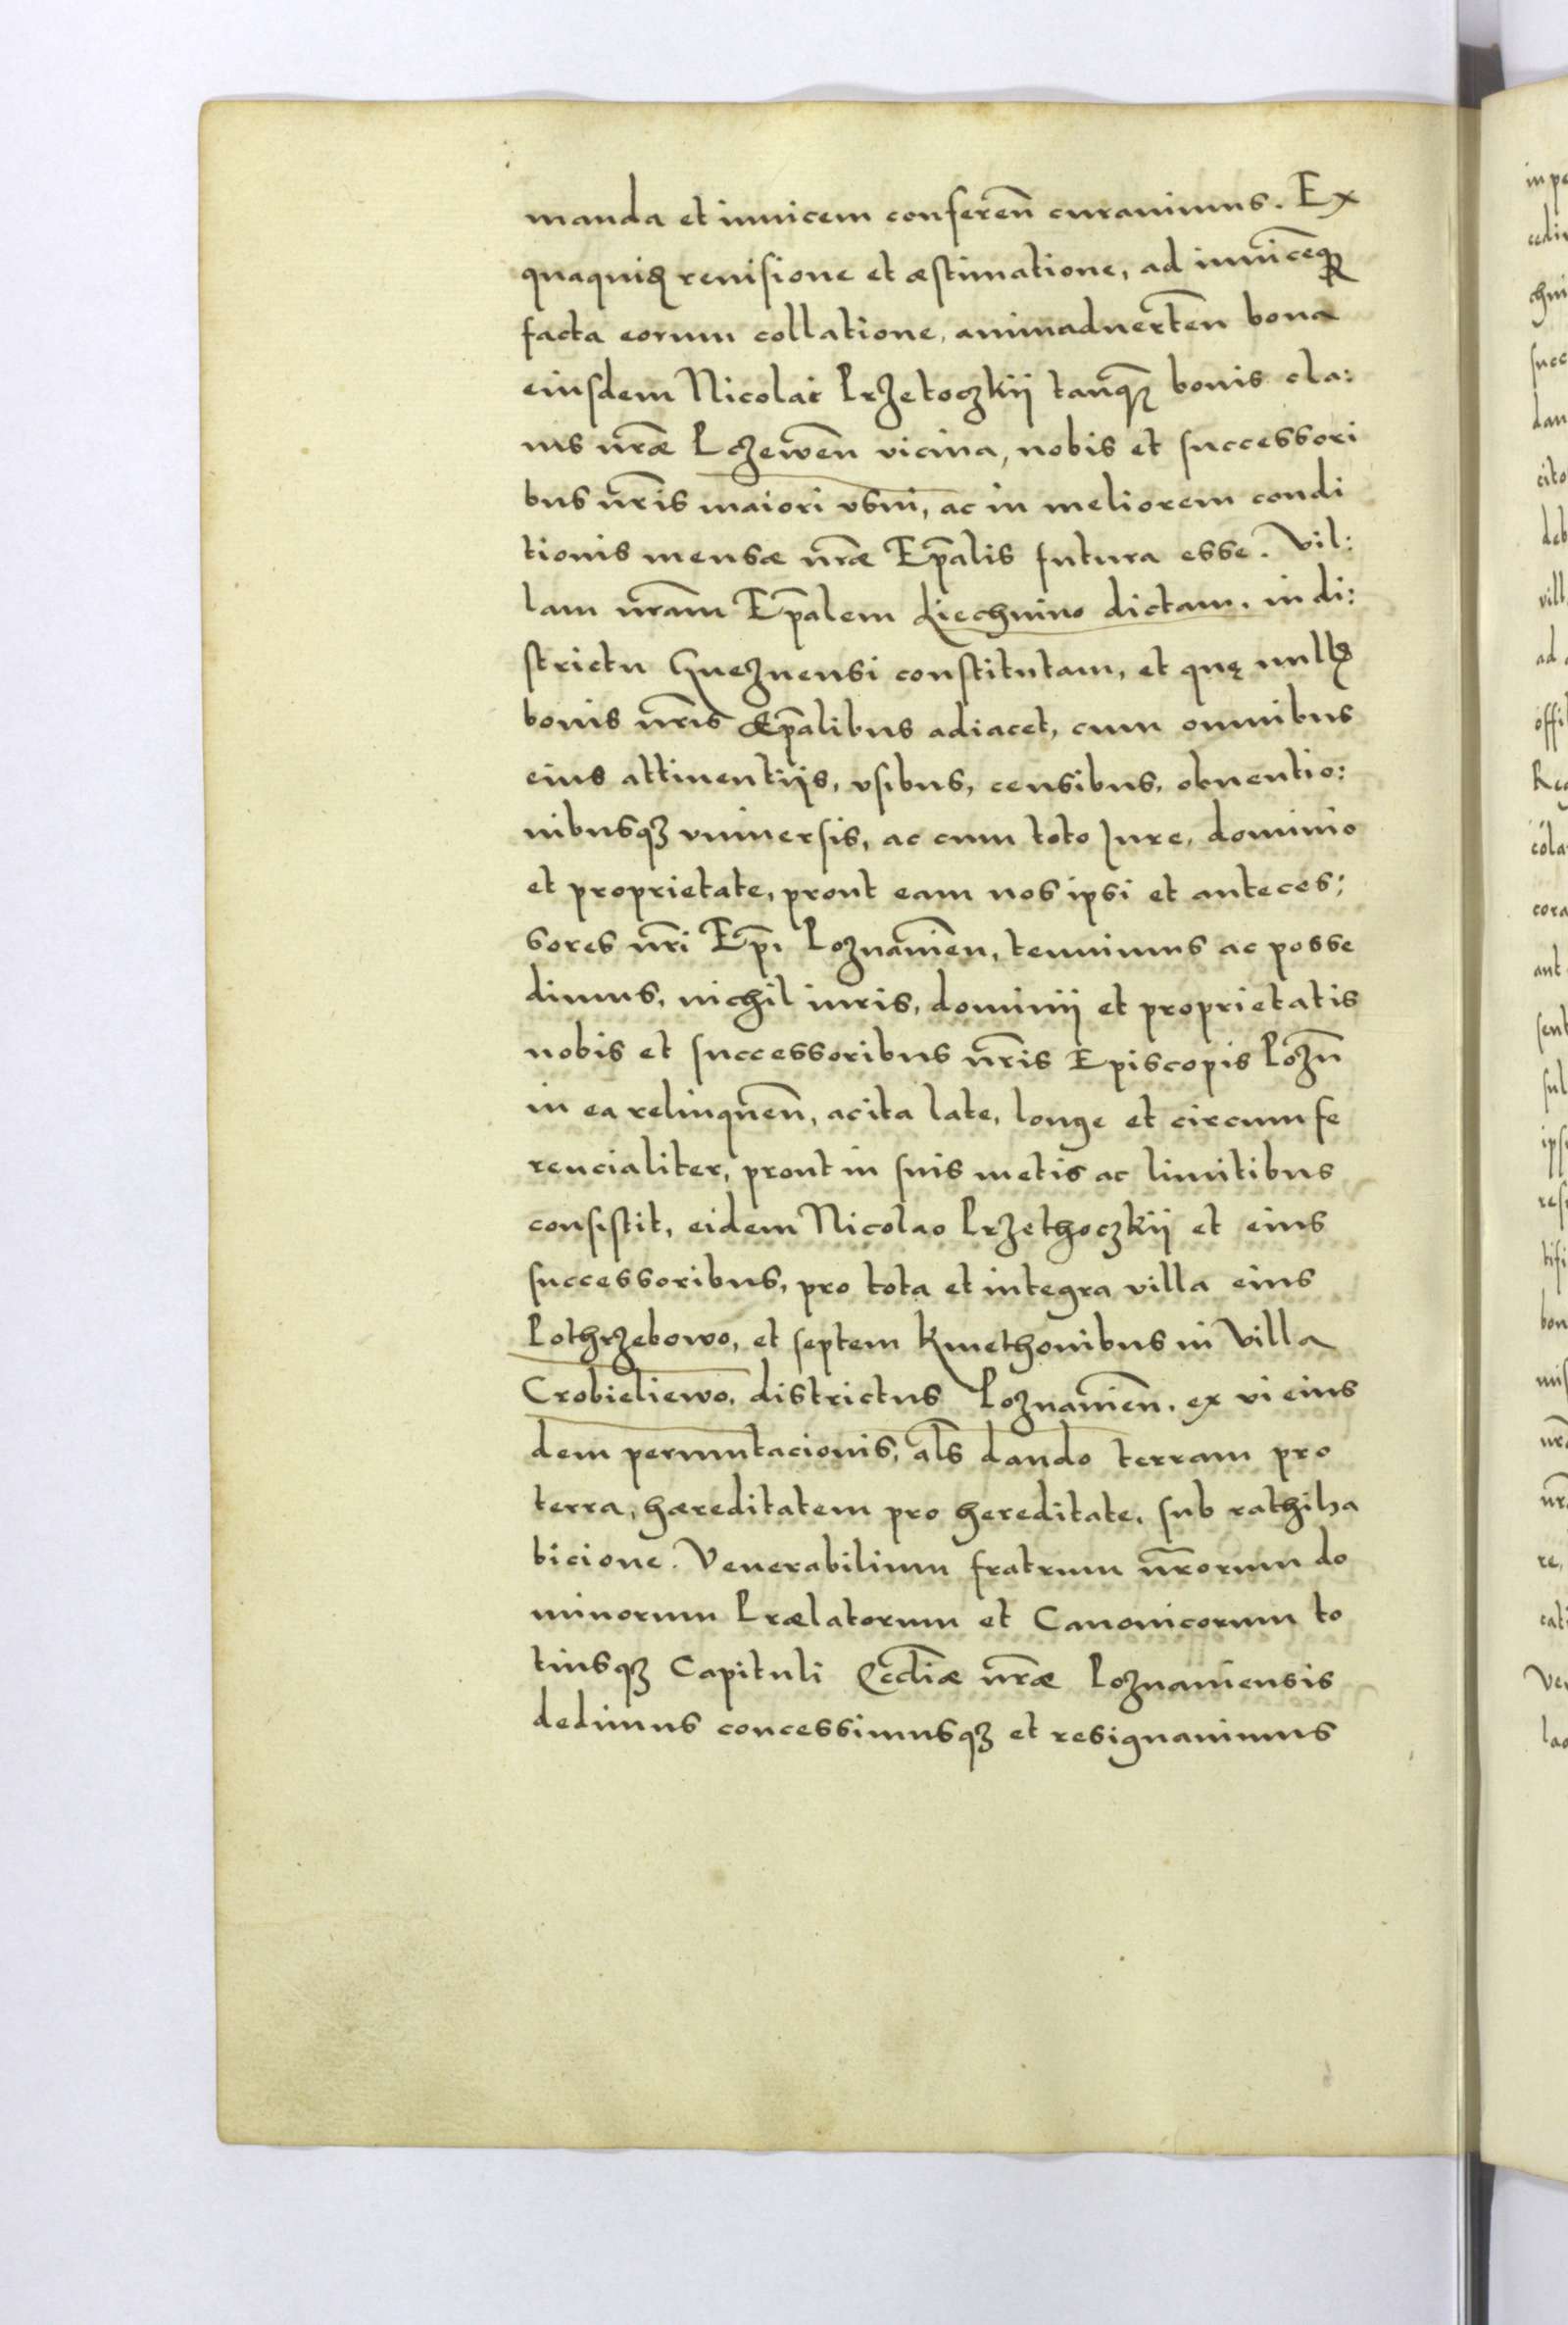 manda et inuicem conferen̄ curauimus. Ex
quaquid̨ reuisione et æstimatione, ad inuicēqꝫ
facta eorum collatione, animaduerten̄ bona
eiusdem Nicolai Przetoczkii tanq̄ bonis cla:
uis nr̄æ Pczewen̄ vicina, nobis et successori
bus nr̄is maiori vsui, ac in meliorem condi
tionis mensæ nr̄æ Ep̄alis futura esse. Vil:
lam nr̄am Ep̄alem Liechnino dictam, in di:
strictu Gneznensi constitutam, et quę null
bonis nr̄is Ep̄alibus adiacet, cum omnibus
eius attinentijs, vsibus, censibus, obuentio:
nibusqꝫ vniuersis, ac cum toto Jure, dominio
et proprietate, prout eam nos ipsi et anteces:
sores nr̄i Ep̄i Poznanien̄, tenuimus ac posse
dimus, nichil iuris, dominij et proprietatis
nobis et successoribus nr̄is Episcopis Pozn̄
in ea relinquen̄, ac ita late, longe et circumfe
rencialiter, prout in suis metis ac limitibus
consistit, eidem Nicolao Przethoczkij et eius
successoribus, pro tota et integra villa eius
Pothrzebowo, et septem Kmethonibus in Villa
Crobieliewo, districtus Poznanien̄, ex vi eius
dem permutacionis, al̄s dando terram pro
terra, hæreditatem pro hereditate, sub rathiha
bicione. Venerabilium fratrum nr̄orum do
minorum Prælatorum et Canonicorum to
tiusqꝫ Capituli Eccl̄iæ nr̄æ Poznaniensis
dedimus concessimusqꝫ et resignauimus